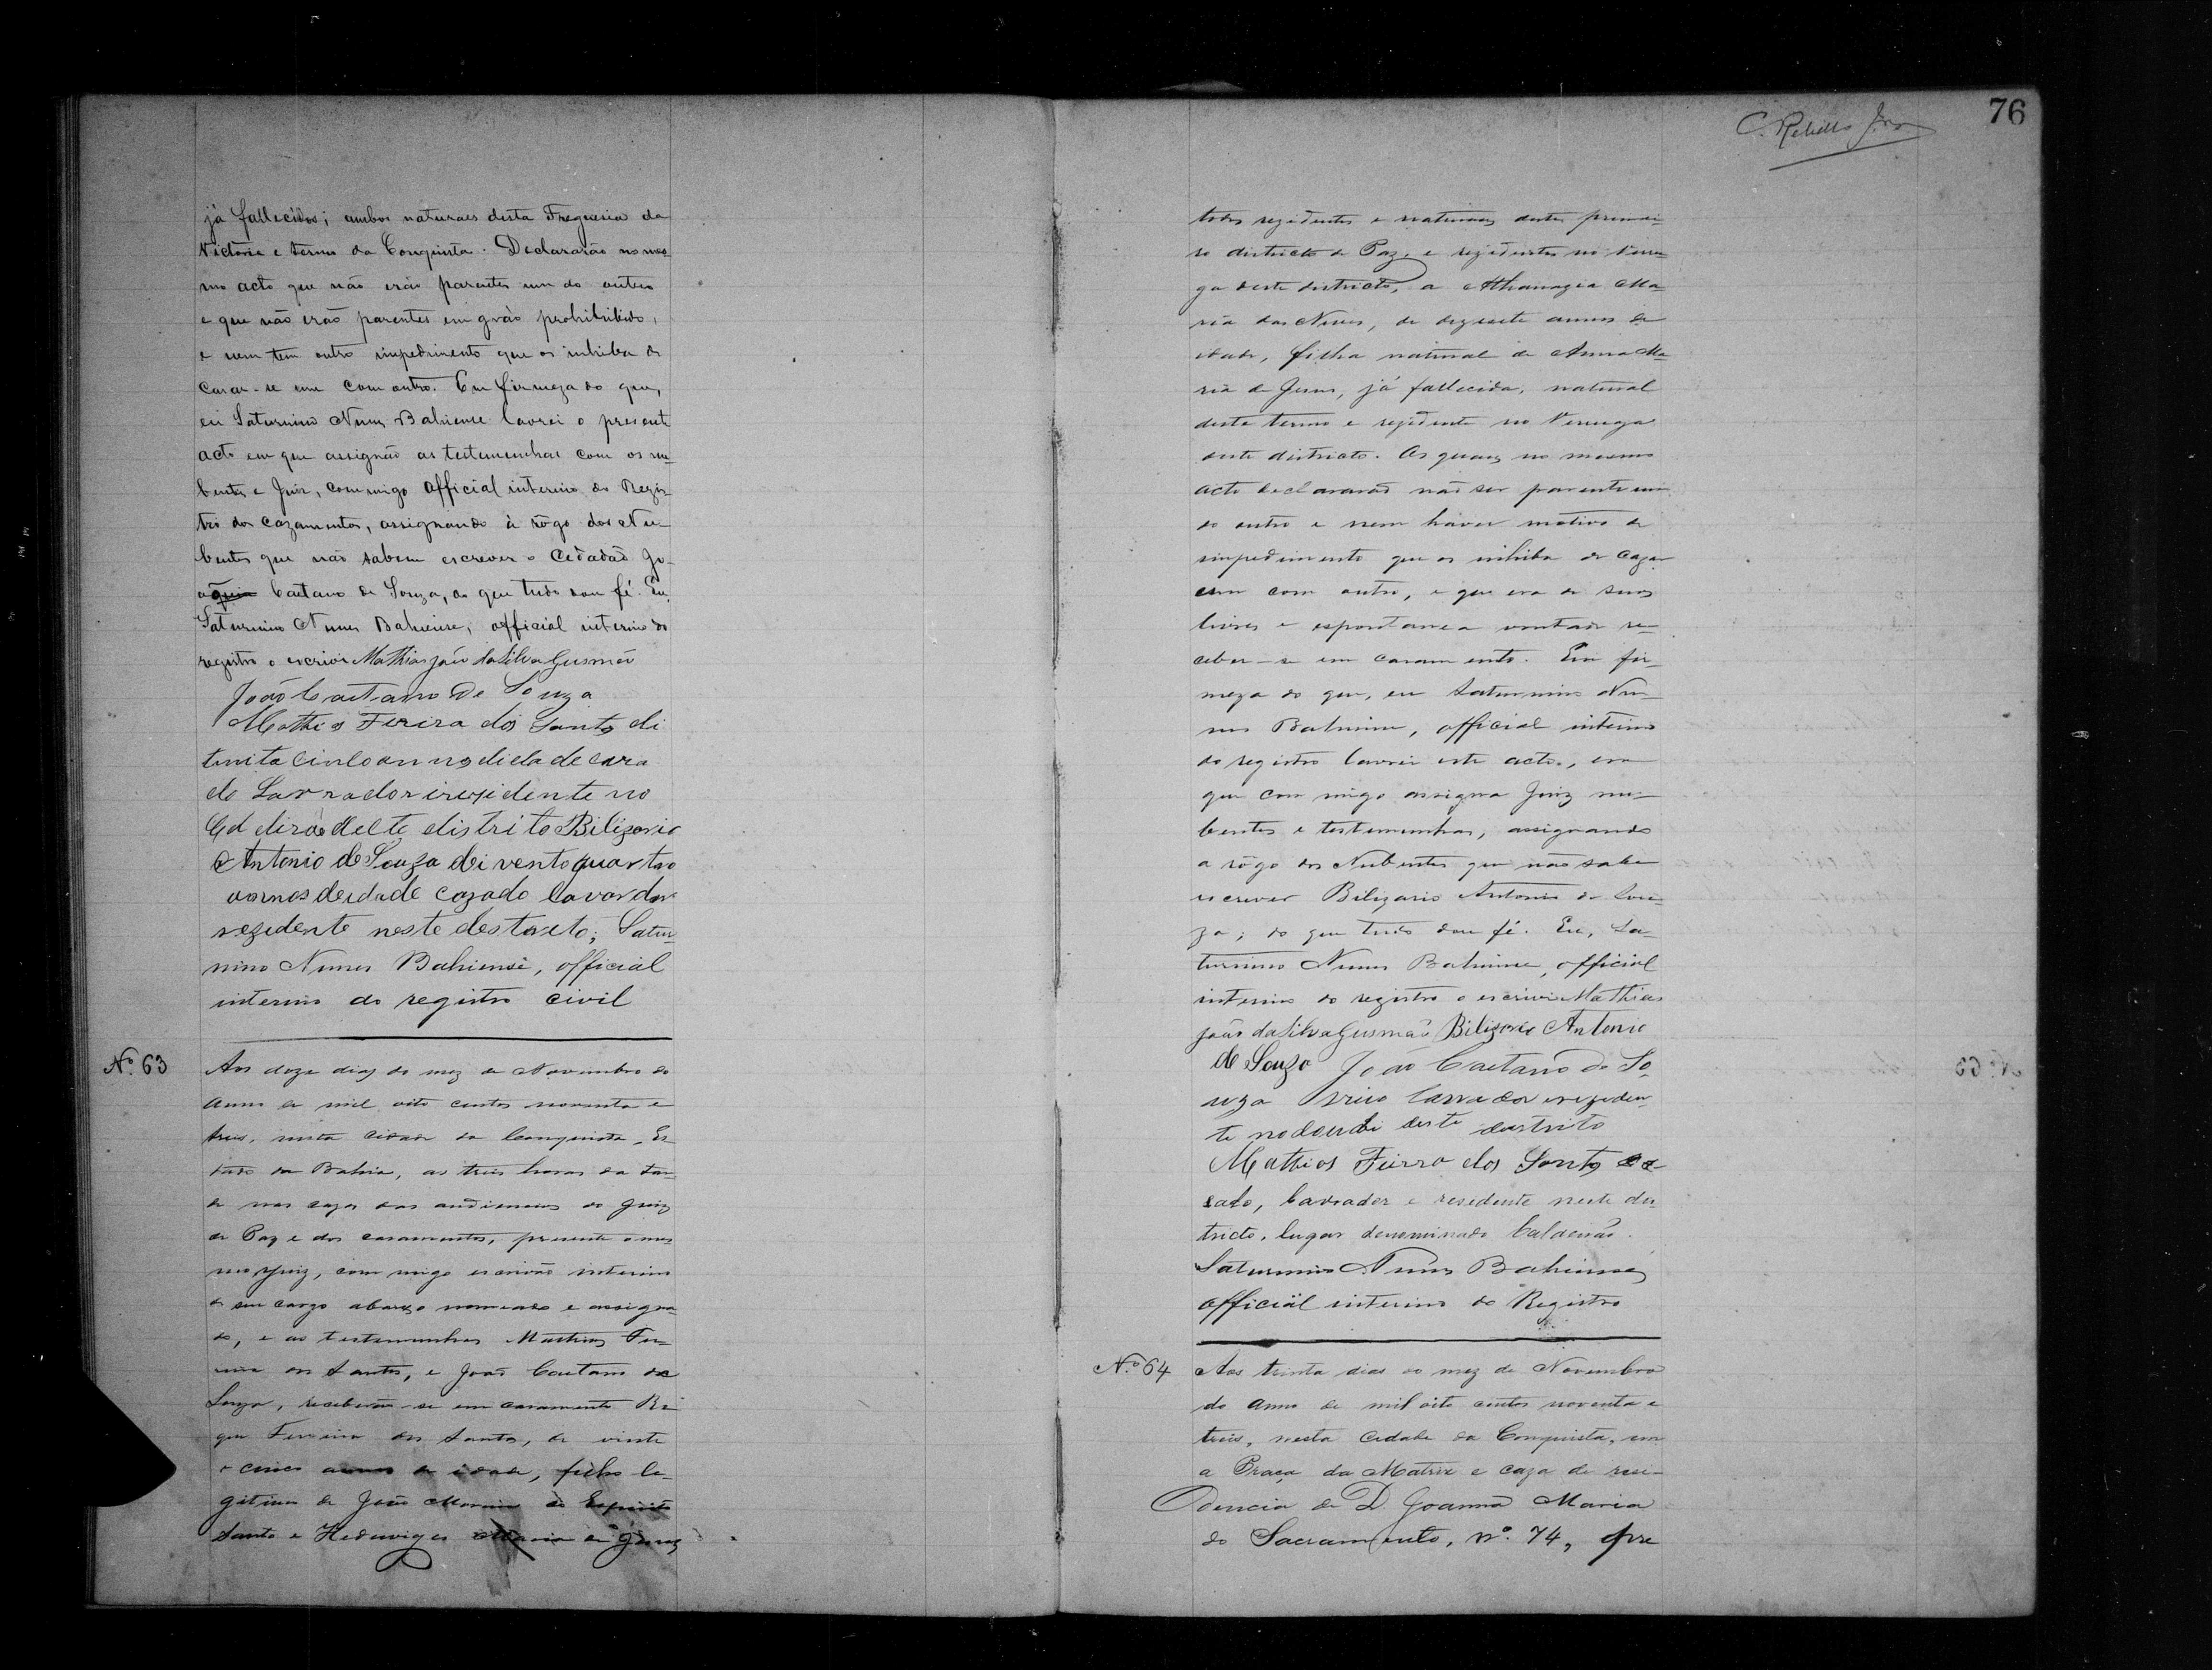 já fallecidos; ambos naturaes desta Freguesia da
Victoria e termo da Conquista. Declararão no mes
mo acto que não erão parentes um do outro
e que não erão parentes em gráo prohibibido,
e nem tem outro impedimento que os inhiba de
casar-se um com outro. Em firmeza do que,
eu Saturnino Nunes Bahiense lavrei o presente
acto em que assignão as testemunhas com os nu-
bentes e Juiz, commigo official interino do Regis
tro dos cazamentos, assignando à rôgo dos Nu-
bentes que não sabem escrever o Cidadão Jo-
ão Caetano de Souza, do que tudo dou fé. Eu,
Saturnino Nunes Bahiense, official interino do
registro o escrivi Mathias João da Silva Gusmão
João Caetano De Souza
Mathias Fereira dos Santos di
trinta cinco annos di idade caza
do Lavrador i rezidente no
deste distrito Bilizario
Antonio de Souza dei vento quartro
annos de idade cazado lavardor
rezidente neste destricto; Satur-
nino Nunes Bahiense, official
interino do registro civil
Nº 63 Aos doze dias do mez de Novembro do
anno de mil oito centos noventa e
tres, nesta cidade da Conquista, Es-
tado da Bahia, as tres horas da tar-
de nas cazas das audiencias do Juiz
de Paz e dos casamentos, presente o mes
mo Juiz, com migo escrivão interino
de seu cargo abaixo nomeado e assigna
do, e as testemunhas Mathias Fer-
reira dos Santos, e João Caetano de
Souza, receberão-se em casamento
Ferreira dos Santos, de vinte
e cinco annos de idade, filho le-
gitimo de João do Espirito
Santo e Hedwiges Maria de Jesus
C. Rebello J.or
76
todos rezidentes e naturaes deste primei-
ro districto de Paz, e rezidentes no Verru-
ga deste districto, a Athanazia Ma-
ria das Neves, de dezisete annos de
idade, filha natural de Anna Ma-
ria de Jesus, já fallecida, natural
deste termo e rezidente no Verruga
deste districto. Os quaes no mesmo
acto declararão não ser parente um
do outro e nem haver motivo de
impedimento que os inhiba de cazar
um com outro, e que era de suas
livres e espontanea vontade re-
ceber-se em casamento. Em fir-
meza do que, eu Saturnino Nu-
nes Bahiense, official interino
do registro lavrei este acto, em
que com migo assigna Juiz nu-
bentes e testemunhas, assignando
a rôgo dos Nubentes que não sabe
escrever Bilizario Antonio de Sou-
za; do que tudo dou fé. Eu, Sa-
turnino Nunes Bahiense, official
interino do registro o escrivi Mathias
João da Silva Gusmão Bilizario Antonio
de Souza João Caetano de So
uza lavrador i rezeden
te no deste destrito
Mathias Feirra dos Santos ca-
sado, lavrador e residente neste dis-
tricto, lugar denominado Caldeirão.
Saturnino Nunes Bahiense
official interino do Registro
Nº 64 Aos trinta dias do mez de Novembro
do anno de mil oito centos noventa e
tres, nesta Cidade da Conquista, em
a Praça da Matriz e caza de resi-
dencia de D. Joanna Maria
do Sacramento, nº. 74, pre